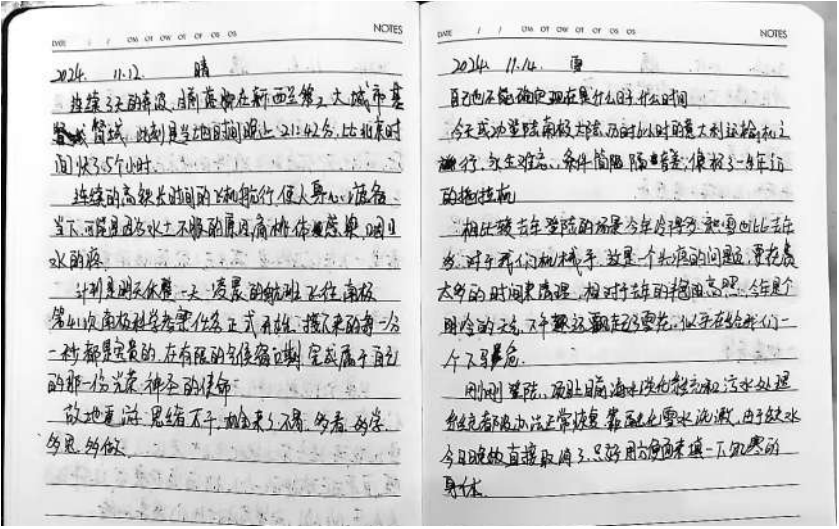 DATE / / OM OT OW OT OF OS OS NOTES
2024. 11.12. 晴
连续3天的奔波,目前落脚在新西兰第2大城市基
督城,此刻是当地时间晚上21:42分,比北京时
间快了5个小时.
连续的高铁长时间的飞机航行使人身心疲惫.
当下,可能是因为水土不服的原因,扁桃体感染,咽口
水的疼.
计划是明天休整一天,凌晨的航班飞往南极
第41次南极科学考察任务正式开始,接下来的每一分
一秒都是宝贵的,在有限的窗口期,完成属于自己
的那一份光荣神圣的使命
故地重游,思绪万千,既来了,不看,多学
多思,多做.
DATE / / OM OT OW OT OF OS OS NOTES
2024. 11.14. 雪
自己也不能确定现在是什么日子,什么时间
今天成功登陆南极大陆,历时6小时的意大利运输机之
行,永生难忘,条件简陋,隔音差,像极了一辆年迈
的拖拉机
相比较去年登陆的场景今年冷得多,积雪也比去年
多,对于我们机械手,这是一个头疼的问题,要花费
太多的时间来清理,相对于去年的艳阳高照,今年是个
阴冷的天气,下午还飘起了雪花,似乎在给我们一
个下马威.
刚刚登陆,顶目前海水淡化系统和污水处理
系统都没办法正常恢复,靠融化雪水洗漱,由于缺水
今日晚饭直接取消了,只好用方便面来填一下饥寒的
身体.